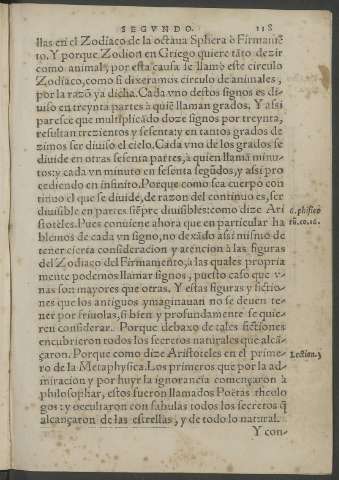 SEGVNDO. 118
llas en el Zodiaco de la octaua Sphera ò Firmamẽ
to. Y porque Zodion en Griego quiere tãto dezir
como animal, por esta causa se llamò este circulo
Zodiaco, como si dixeramos circulo de animales,
por la razõ ya dicha. Cada vno destos signos es di-
uiso en treynta partes à quiẽ llaman grados. Y assi
paresce que multiplicãdo doze signos por treynta,
resultan trezientos y sesenta: y en tantos grados de
zimos ser diuiso el cielo. Cada vno de los grados se
diuide en otras sesenta partes, à quien llamã minu-
tos: y cada vn minuto en sesenta segũdos, y assi pro
cediendo en infinito. Porque como sea cuerpo con
tinuo el que se diuide, de razon del continuo es, ser
diuisible en partes siẽpre diuisibles: como dize Ari
6. phisico
stoteles. Pues conuiene ahora que en particular ha
rũ. co. 16.
blemos de cada vn signo, no dexãdo assi mismo de
tener cierta consideracion y atencion à las figuras
del Zodiaco del Firmamento, à las quales propria
mente podemos llamar signos, puesto caso que v-
nas son mayores que otras. Y estas figuras y fictio-
nes que los antiguos ymaginauan no se deuen te-
ner por friuolas, si bien y profundamente se quie-
ren considerar. Porque debaxo de tales fictiones
encubrieron todos los secretos naturales que alcã-
çaron. Porque como dize Aristoteles en el prime-
Lection. 3
ro de la Metaphysica. Los primeros que por la ad-
miracion y por huyr la ignorancia començaron à
philosophar, estos fueron llamados Poëtas theolo
gos: y occultaron con fabulas todos los secretos q̃
alcançaron de las estrellas, y de todo lo natural.
Y con-